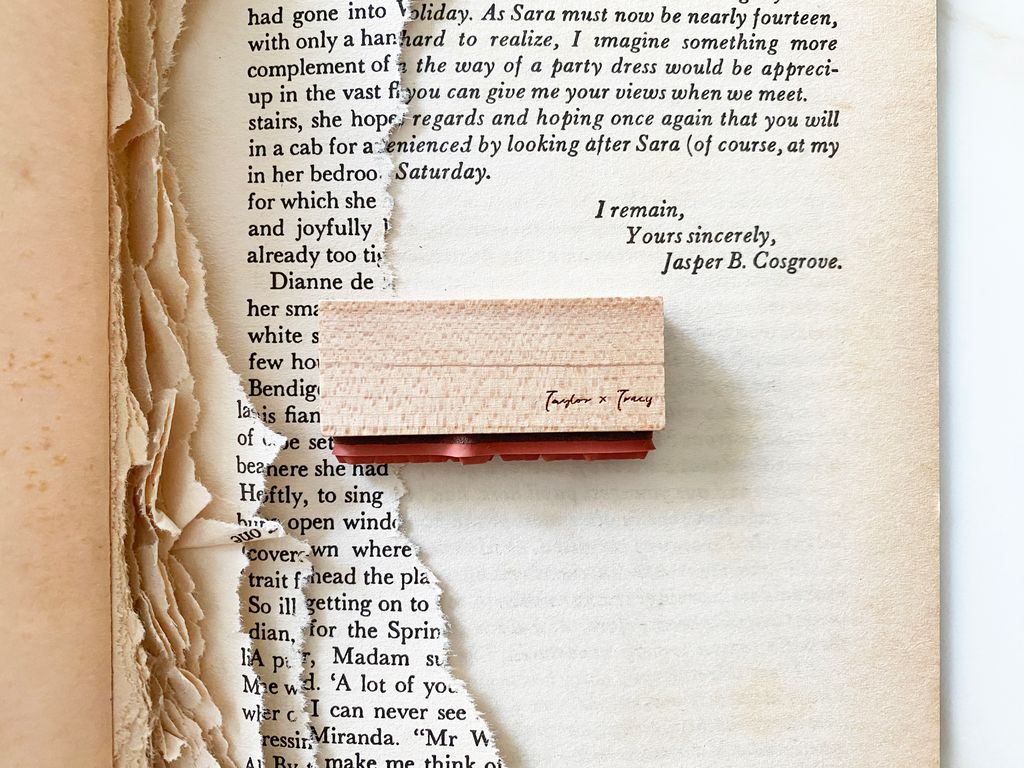 had gone into oliday. As Sara must now be nearly fourteen,
with only a han hard to realize, I imagine something more
complement of the way of a party dress would be appreci-
up in the vast you can give me your views when we meet.
stairs, she hope regards and hoping once again that you will
in a cab for a enienced by looking after Sara (of course, at my
in her bedroo Saturday.
for which she
I remain,
and joyfully
Yours sincerely,
already too tig
Jasper B. Cosgrove.
Dianne de
her sma
white s
few hou
Bendig
Taylor x Tracy
is fian
of se set
bea here she had
He ftly, to sing
open windo
one
cover wn where
trait f head the pla
So ill getting on to
dian, for the Sprin
A p r, Madam su
Me w d. 'A lot of you
I can never see
ressin Miranda. "Mr W
By make me think of